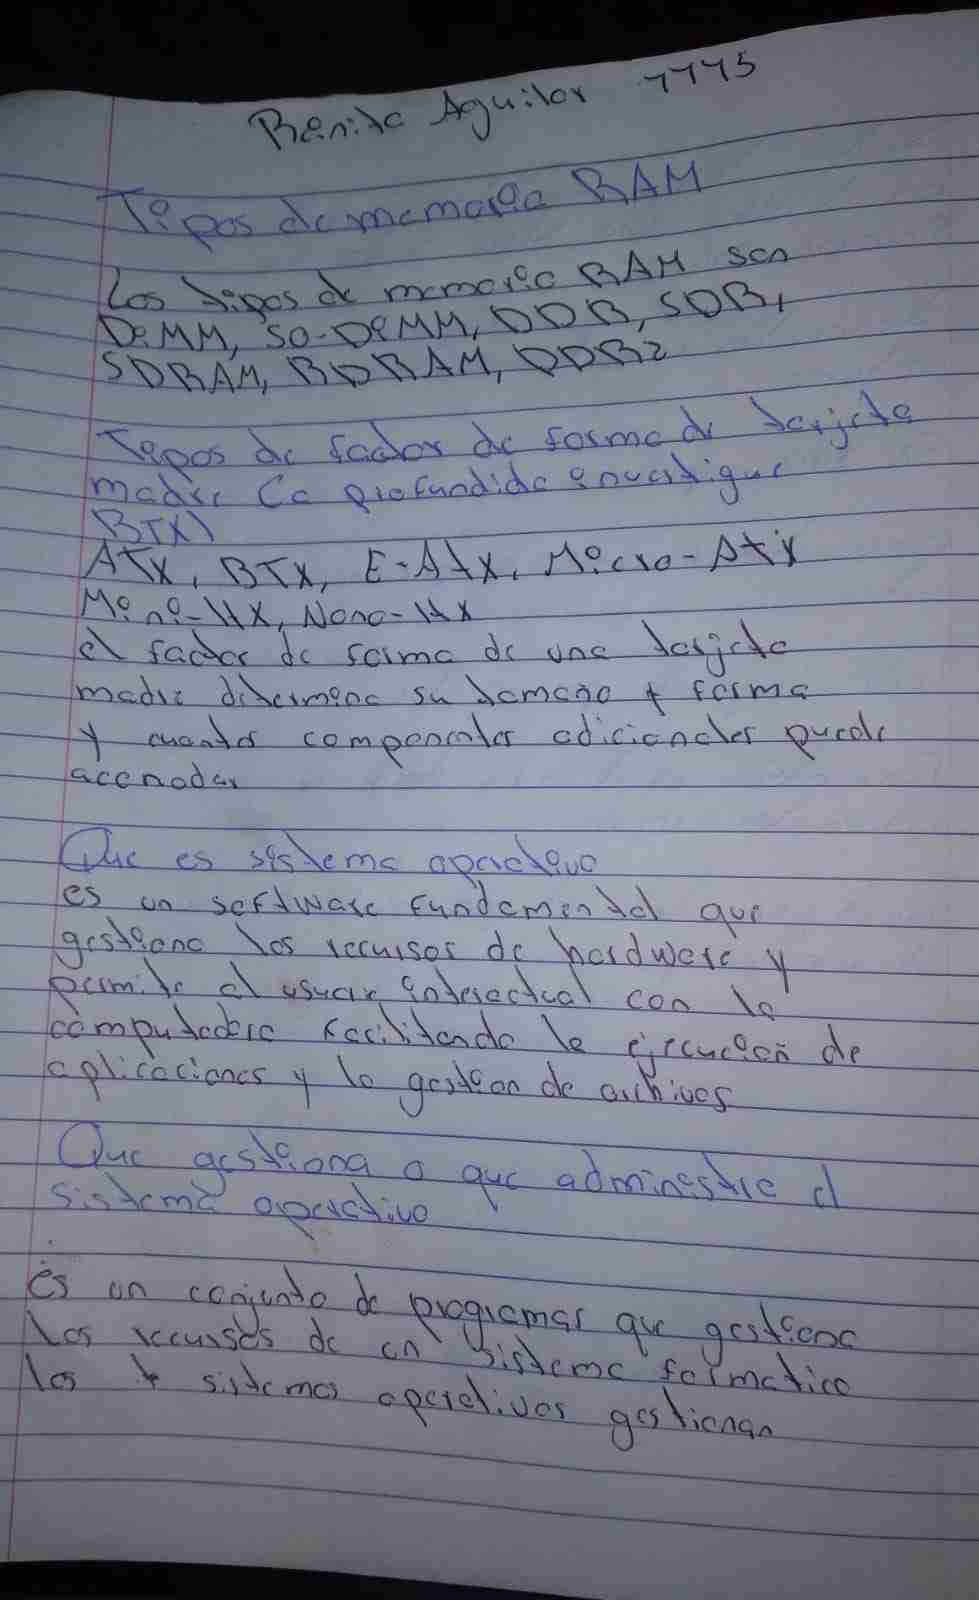 Benita Aguilar 7775
Tipos de memoria RAM
Los tipos de memoria RAM son
DiMM, SO-DiMM, DDR, SDR,
SDRAM, RDRAM, DDR2
Tipos de factor de forma de tarjeta
madre (a profundida investigue
BTX)
ATX, BTX, E-Atx, Micro-Atx
Mini-ITX, Nano-ITX
el factor de forma de una tarjeta
madre determina su tamaño y forma
y cuantos componentes adicionales puede
acomodar
Que es sistema operativo
es un software fundamental que
gestiona los recursos de hardware y
permite al usuar interactual con la
computadora facilitando la ejecución de
aplicaciones y la gestion de archivos
Que gestiona o que administra el
sistema operativo
es un conjunto de programas que gestiona
los recursos de un sistema formatico
los sistemas operativos gestionan